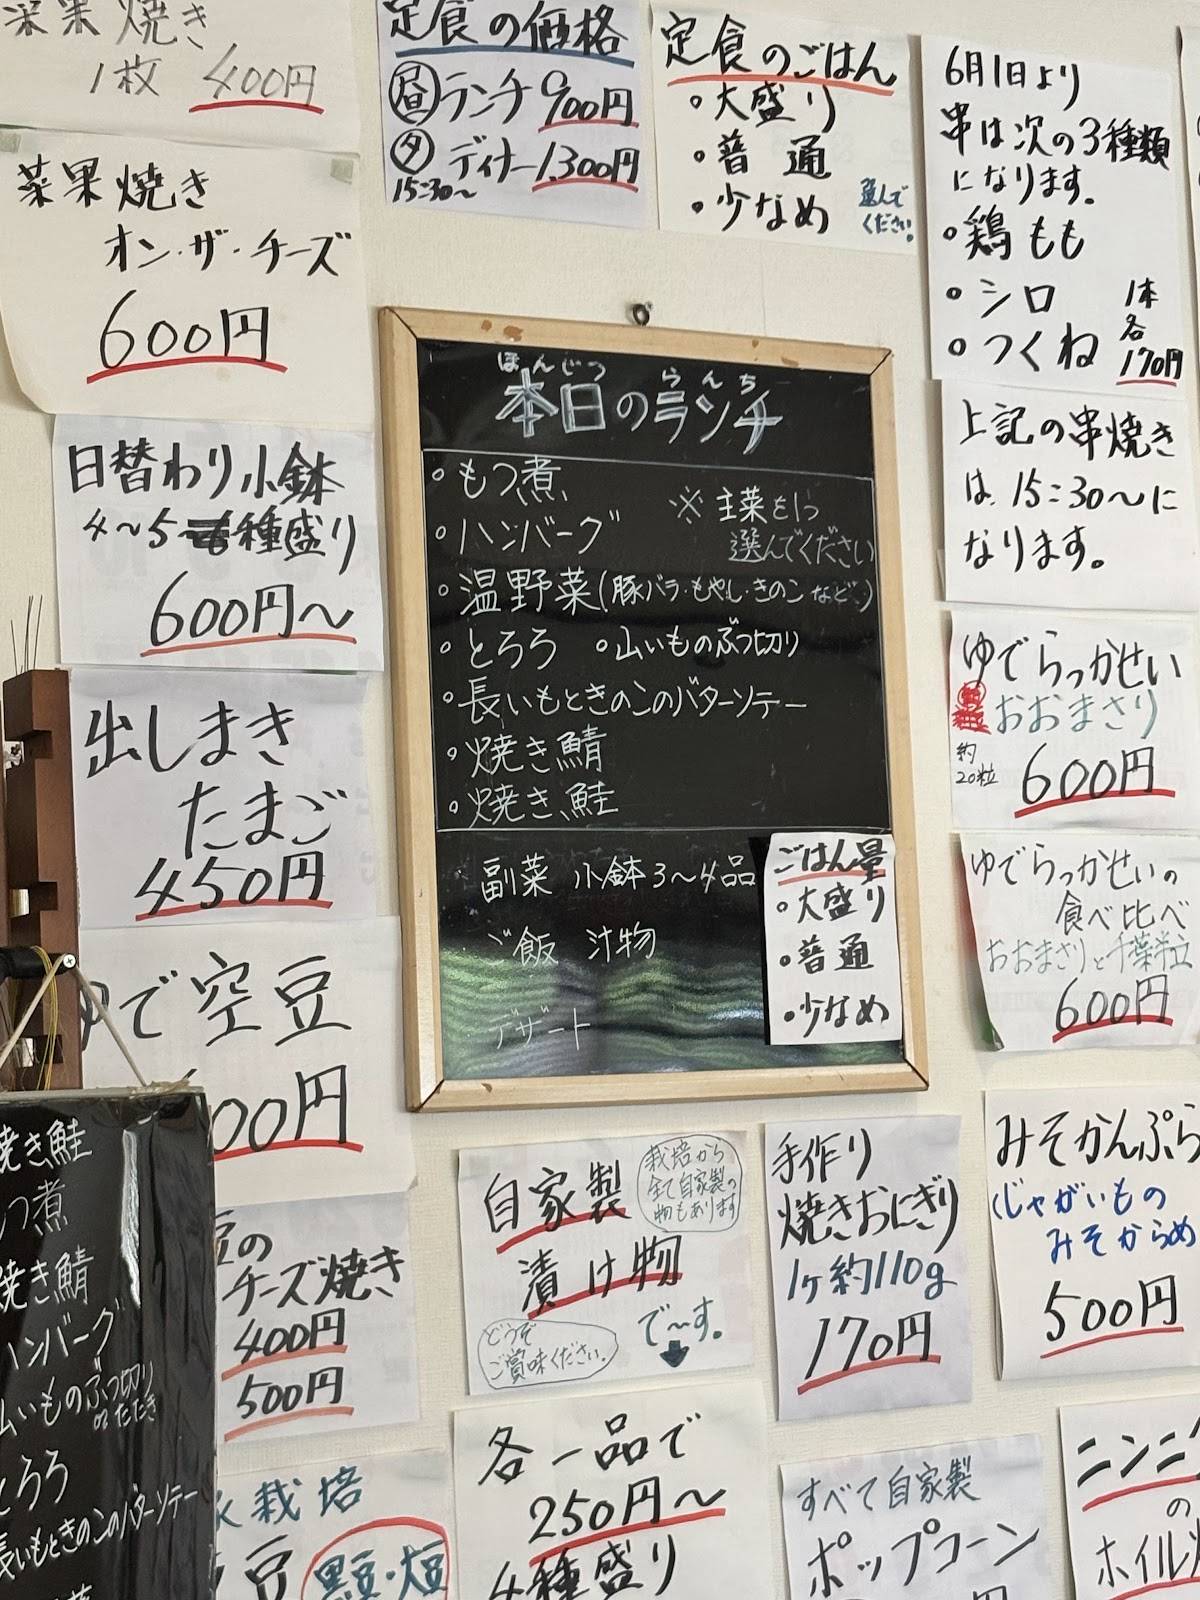 菜果焼き
1枚 400円
菜果焼き
オン・ザ・チーズ
600円
日替わり小鉢
4〜5種盛り
600円〜
出しまき
たまご
450円
ゆで空豆
00円
豆の
チーズ焼き
400円
500円
栽培
豆
黒豆・大豆
定食の価格
昼ランチ900円
夕ディナー1,300円
15:30〜
定食のごはん
・大盛り
・普通
・少なめ
選んで
ください。
6月1日より
串は次の3種類
になります。
・鶏もも
・シロ
・つくね
1本
各
170円
上記の串焼き
は、15:30〜に
なります。
ほんじつ らんち
本日のランチ
・もつ煮
・ハンバーグ
※主菜を1つ
選んでください
・温野菜(豚バラ・もやし・きのこなど)
・とろろ ・山いものぶつ切り
・長いもときのこのバターソテー
・焼き鯖
・焼き鮭
副菜 小鉢3〜4品
ご飯 汁物
デザート
ごはん量
・大盛り
・普通
・少なめ
ゆでらっかせい
おおまさり
約
20粒
600円
ゆでらっかせいの
食べ比べ
おおまさりと千葉半立
600円
みそかんぷら
(じゃがいもの
みそからめ
500円
手作り
焼きおにぎり
1ヶ約110g
170円
自家製
漬け物
で〜す。
栽培から
全て自家製の
物もあります
どうぞ
ご賞味ください。
各一品で
250円〜
4種盛り
すべて自家製
ポップコーン
円
ニンニ
の
ホイル
焼き鮭
もつ煮
焼き鯖
ハンバーグ
山いものぶつ切り
orたたき
とろろ
長いもときのこのバターソテー